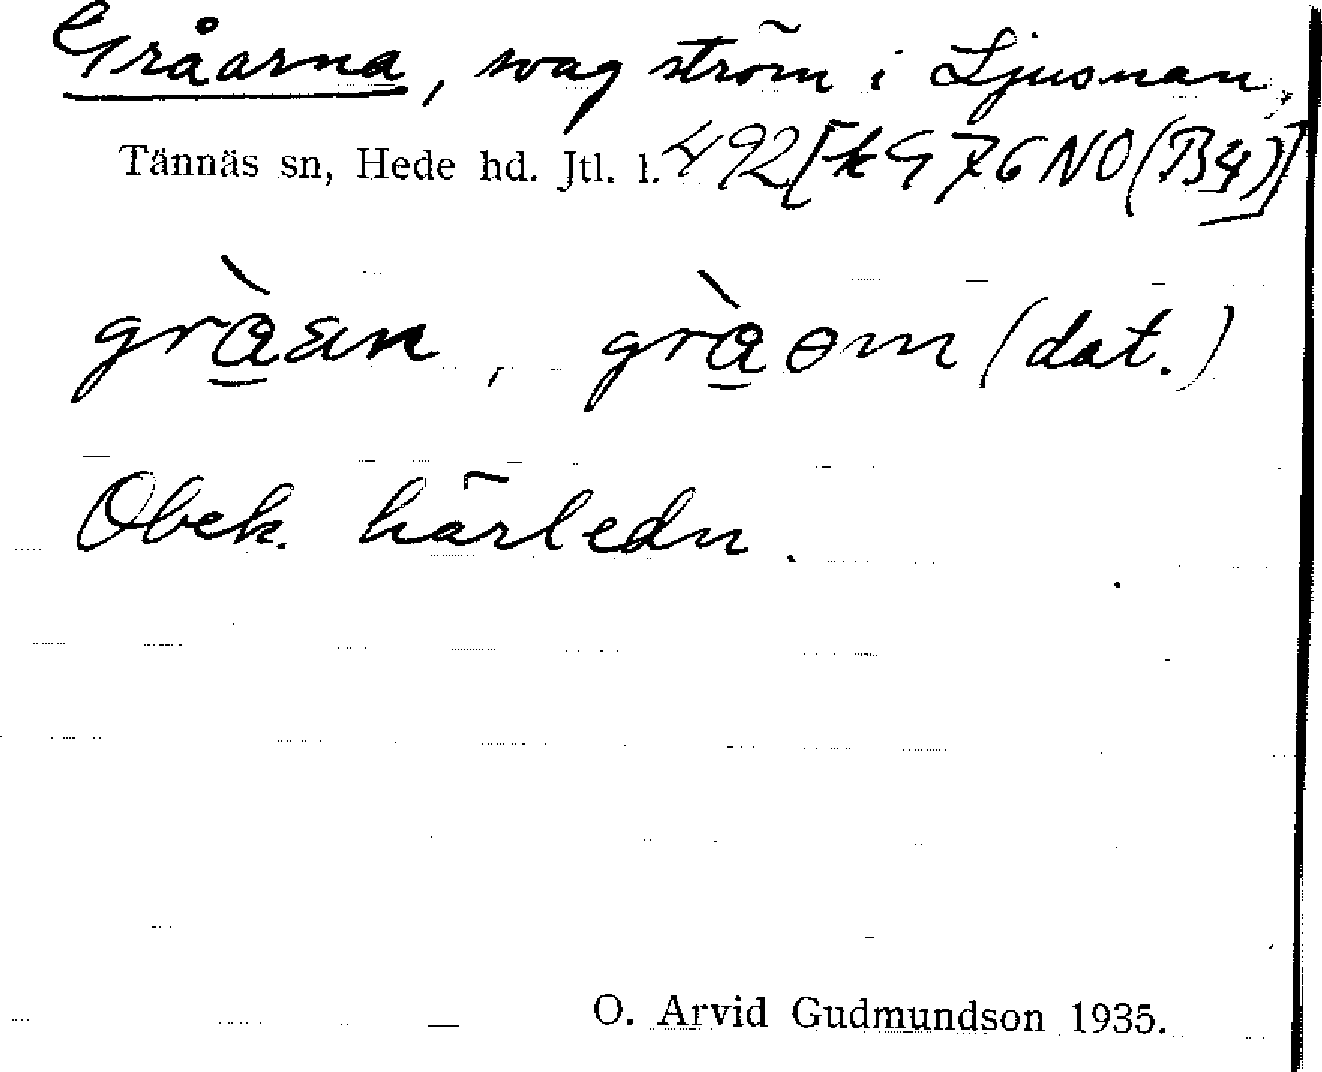 Gråarna, svag ström i Ljusnan,
Tännäs sn, Hede hd. Jtl. l. 492 [kG 76 NO (B4)]
gràan, gràom (dat.)
Obek. härledn.
O. Arvid Gudmundson 1935.